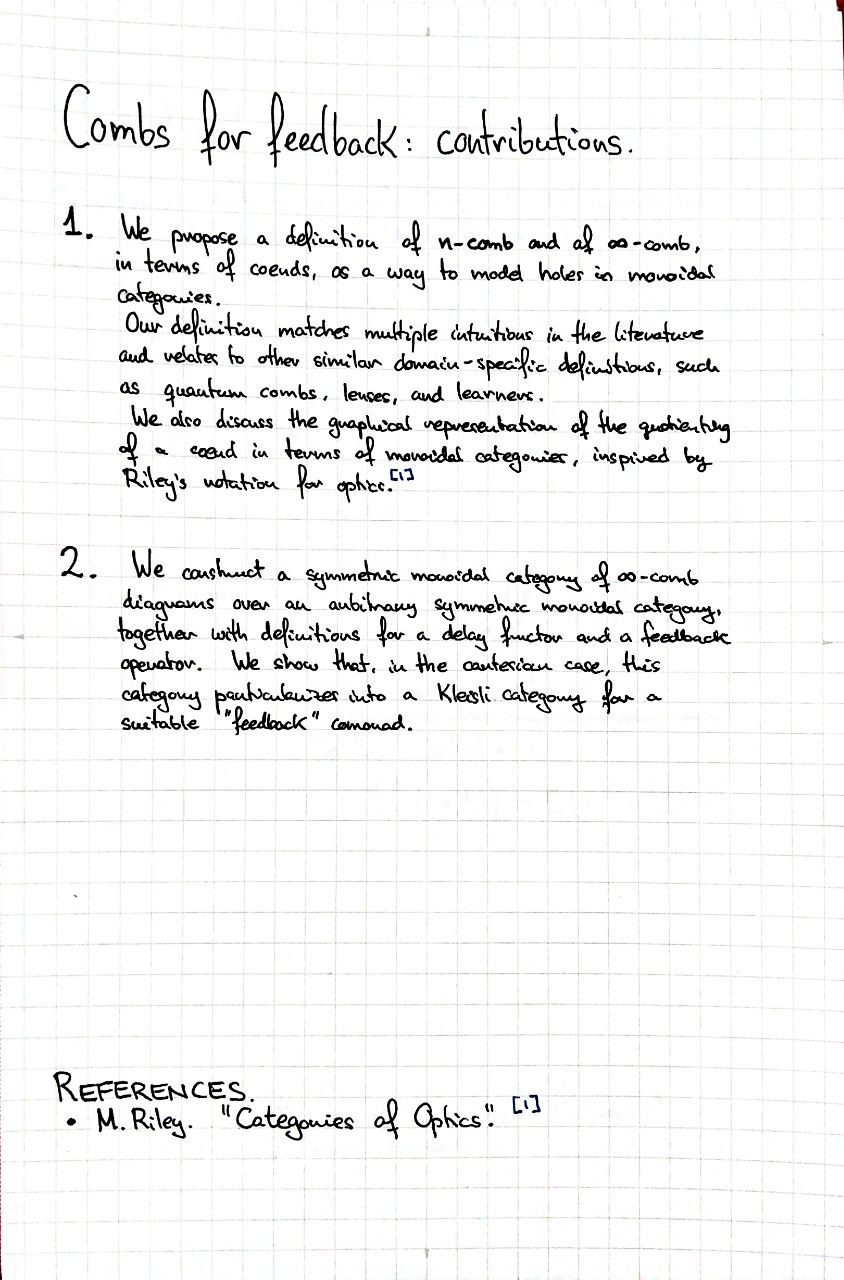 Combs for feedback: contributions.
1. We propose a definition of n-comb and of ∞-comb,
in terms of coends, as a way to model holes in monoidal
categories.
Our definition matches multiple intuitions in the literature
and relates to other similar domain-specific definitions, such
as quantum combs, lenses, and learners.
We also discuss the graphical representation of the quotienting
of a coend in terms of monoidal categories, inspired by
Riley's notation for optics.[1]
2. We construct a symmetric monoidal category of ∞-comb
diagrams over an arbitrary symmetric monoidal category,
together with definitions for a delay functor and a feedback
operator. We show that, in the cartesian case, this
category particularizes into a Kleisli category for a
suitable "feedback" comonad.
REFERENCES.
• M. Riley. "Categories of Optics". [1]